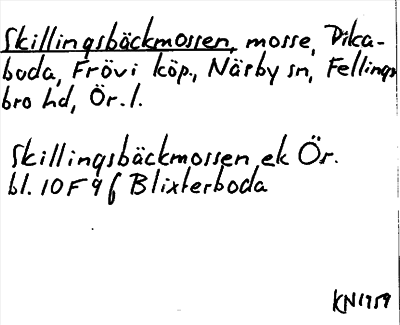 Skillingsbäckmossen, mosse, Dika-
boda, Frövi köp., Näsby sn, Fellings
bro hd, Ör. l.
Skillingsbäckmossen ek Ör.
bl. 10 F 9 f Blixterboda
KN1959